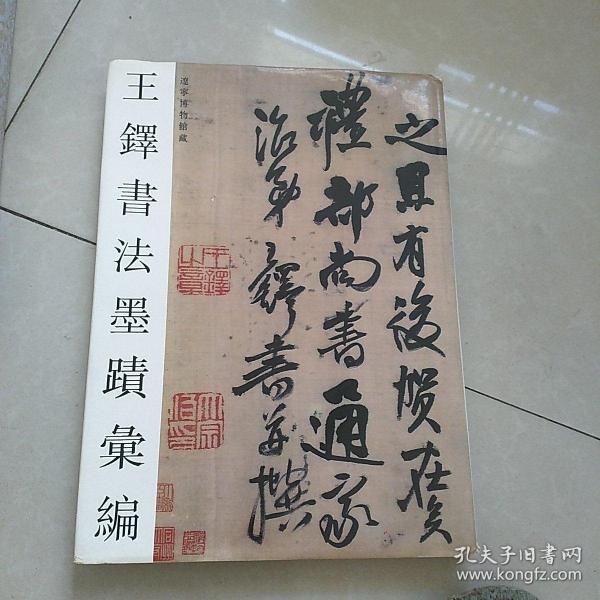 王鐸書法墨蹟彙編
遼寧博物館藏
之具有後賀在矣
禮部尚書通家
治弟王鐸書并撰
王鐸之章
大宗伯印
孔夫子旧书网
www.kongfz.com